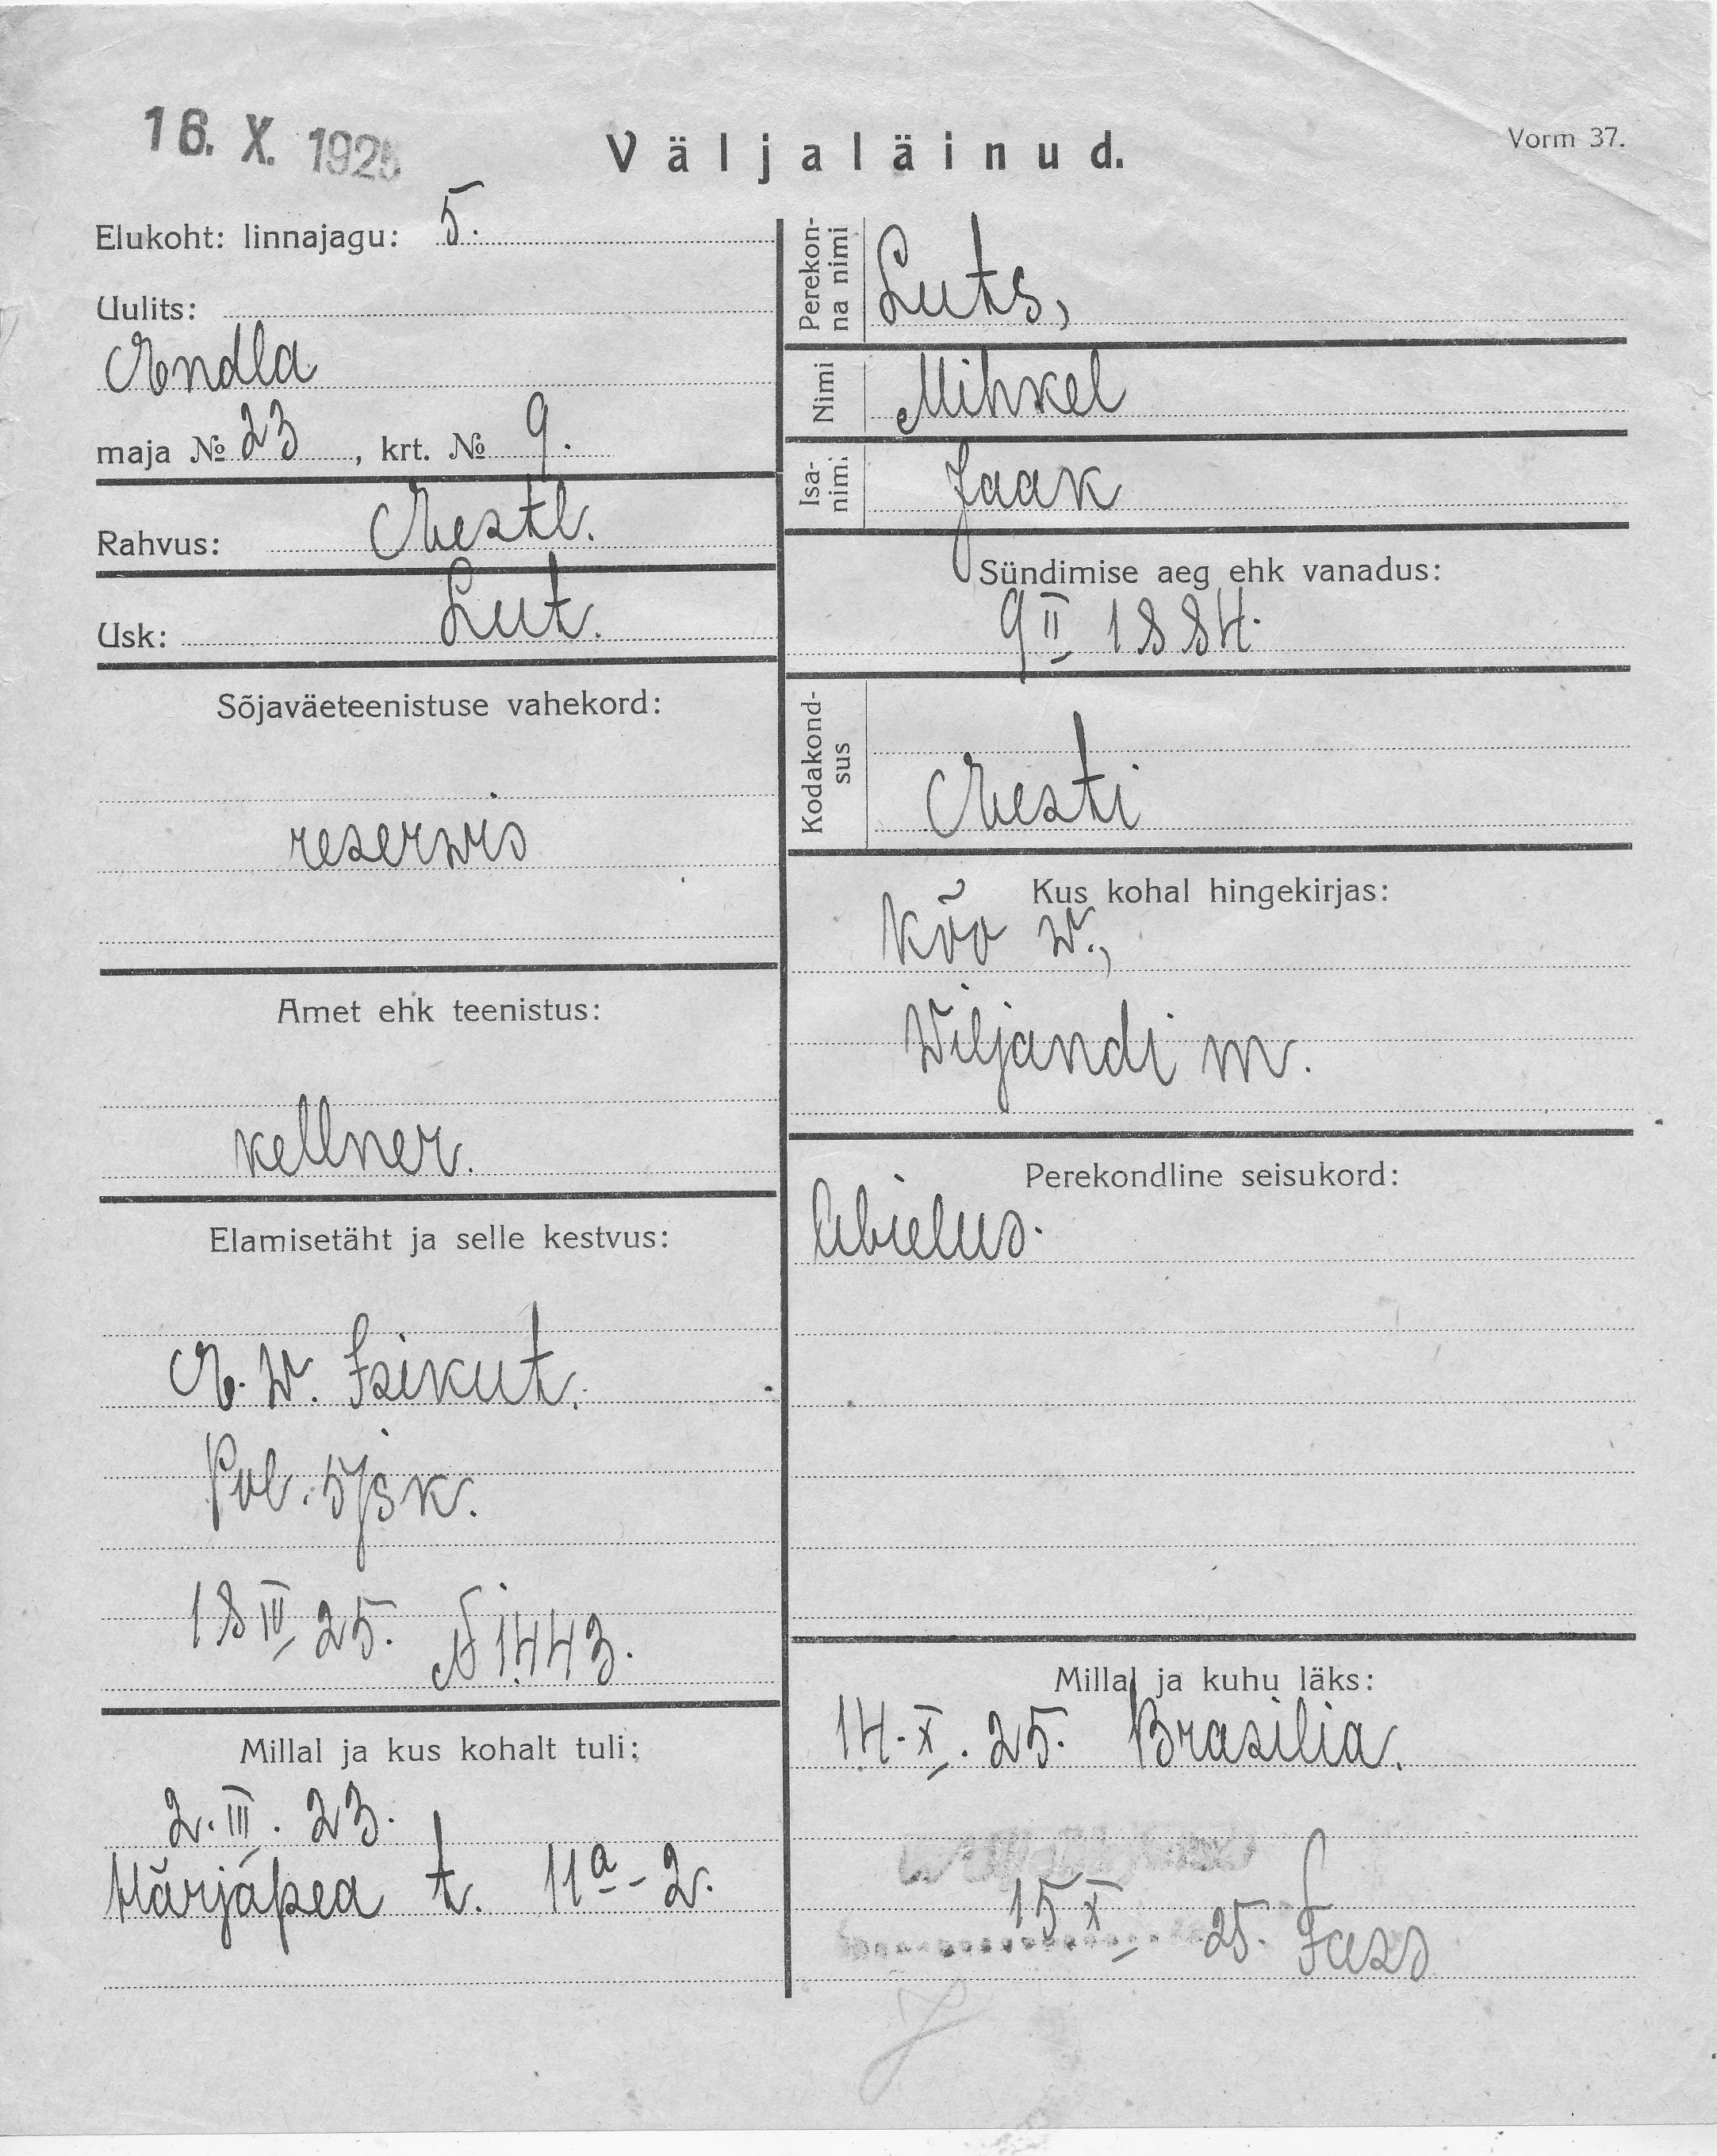 16. X. 1925
Väljaläinud.
Vorm 37.
Elukoht: linnajagu: 5.
Uulits:
Endla
maja № 23, krt. № 9.
Rahvus: Eestl.
Usk: Lut.
Sõjaväeteenistuse vahekord:
reserwis
Amet ehk teenistus:
kellner.
Elamisetäht ja selle kestvus:
E. W. Isikut.
Pol. 5/jsk.
18 IV 25. № 1443.
Millal ja kus kohalt tuli:
2. III. 23.
Härjapea t. 11ª - 2.
Perekonna nimi
Luts,
Nimi
Mihkel
Isanimi
Jaak
Sündimise aeg ehk vanadus:
9 II 1884.
Kodakondsus
Eesti
Kus kohal hingekirjas:
Kõo w.,
Wiljandi m.
Perekondline seisukord:
Abielus.
Millal ja kuhu läks:
14. X. 25. Brasilia.
15 X 25.